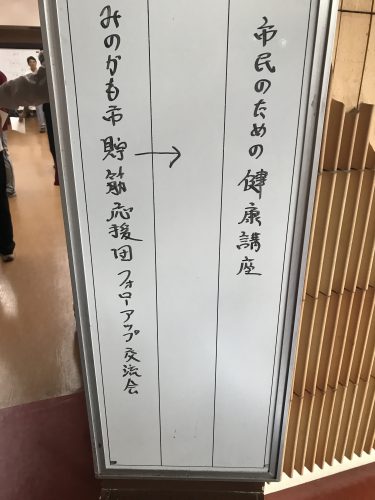 市民のための健康講座
→
みのかも市貯筋応援団フォローアップ交流会